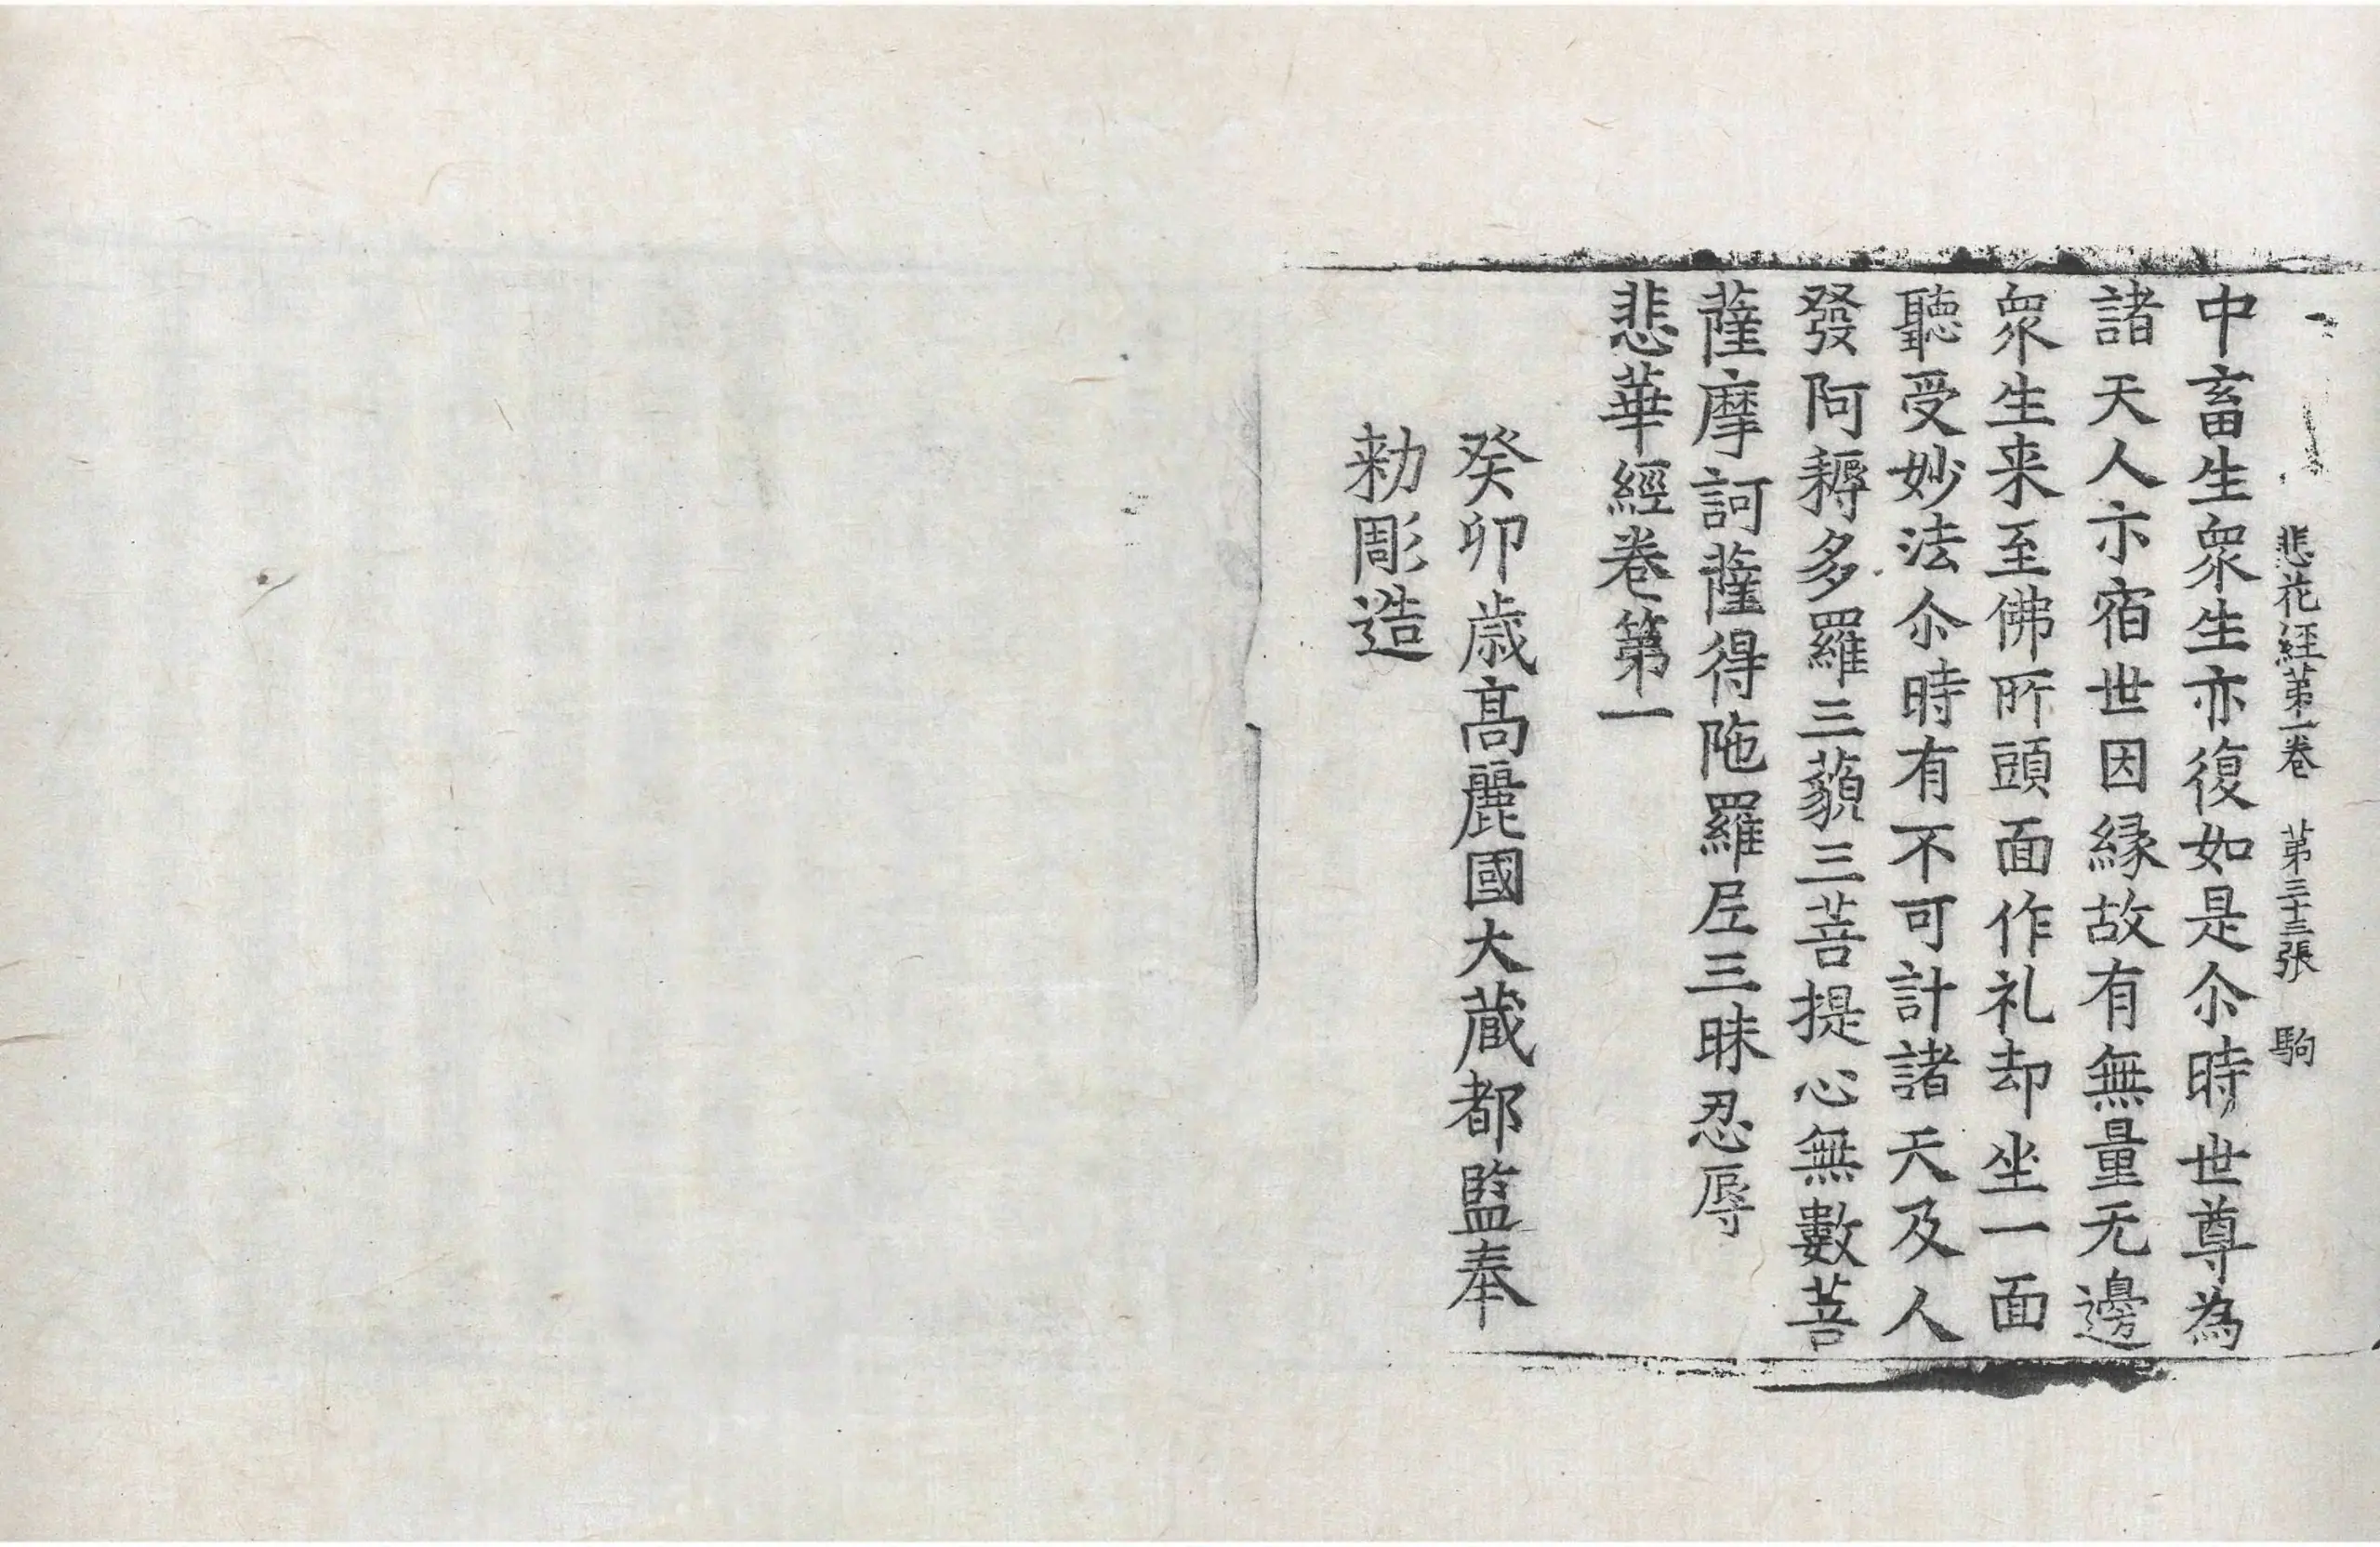 悲花經苐一卷 苐三十三張 駒
中畜生衆生亦復如是尒時世尊為
諸天人亦宿世因縁故有無量无邊
衆生来至佛所頭面作礼却坐一面
聽受妙法尒時有不可計諸天及人
發阿耨多羅三藐三菩提心無數菩
薩摩訶薩得陁羅𡰱三昧忍辱
悲華經卷第一
癸卯歳高麗國大蔵都監奉
勑彫造